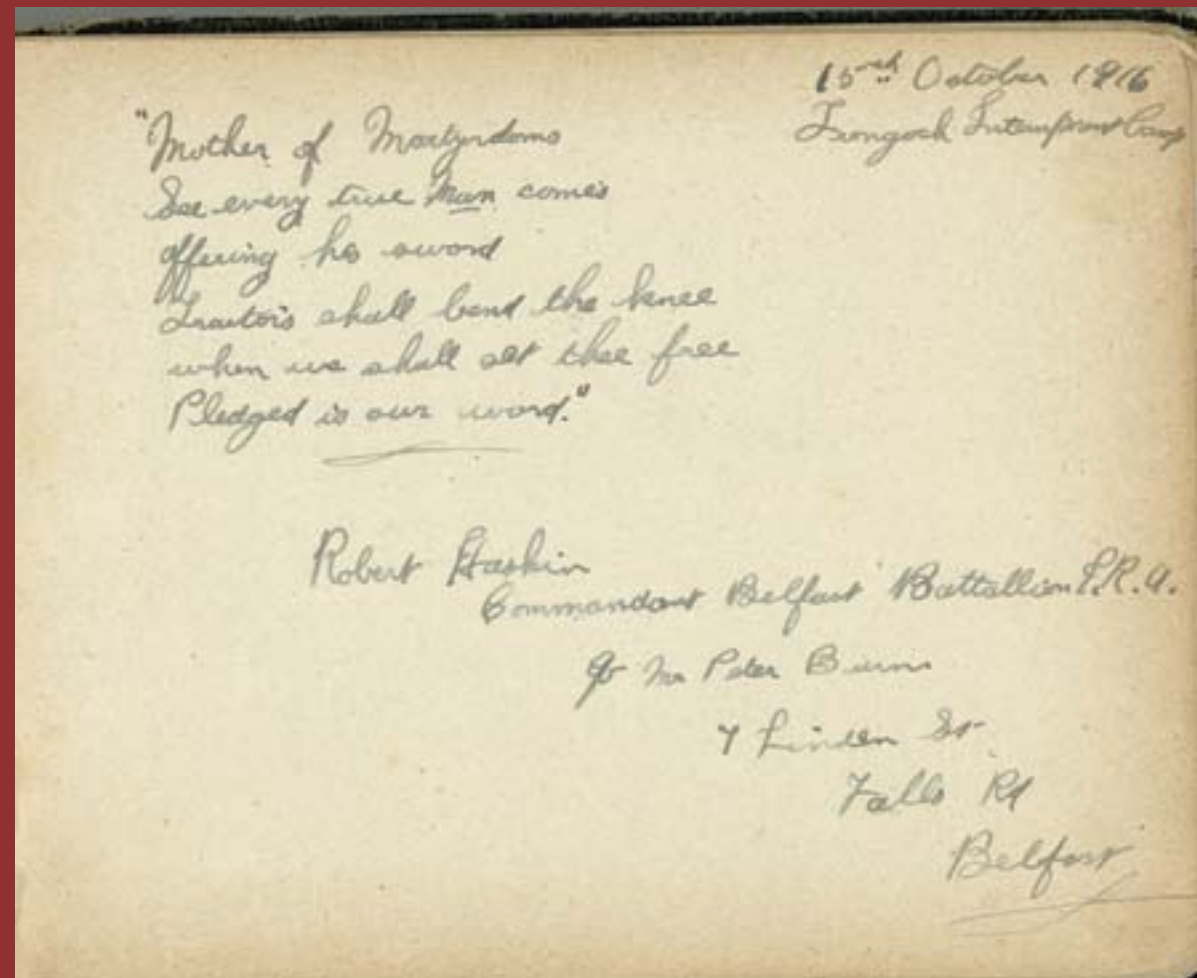 15th October 1916
Frongoch Internment Camp
"Mother of Martyrdoms
See every true Man comes
offering his sword
Traitors shall bend the knee
when we shall set thee free
Pledged is our word."
Robert Haskin
Commandant Belfast Battallion I.R.A.
c/o Mr Peter Burns
7 Linden St
Falls Rd
Belfast